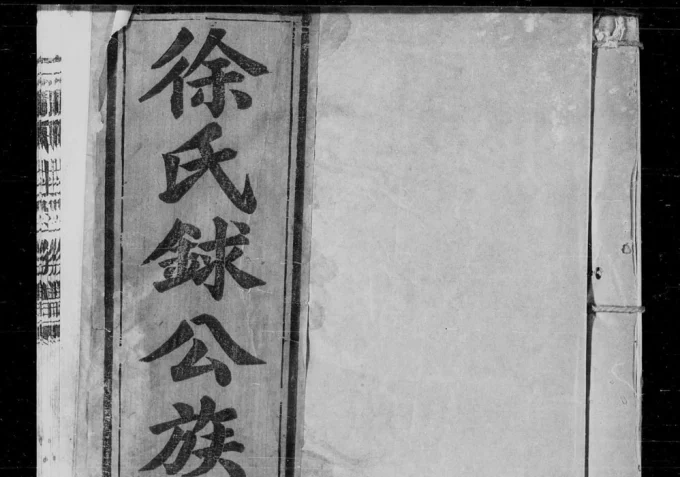 徐氏銾公族